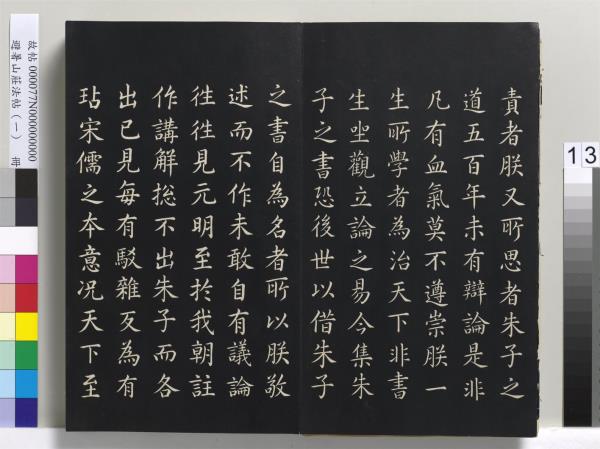 責者朕又所思者朱子之
道五百年未有辯論是非
凡有血氣莫不遵崇朕一
生所學者為治天下非書
生坐觀立論之易今集朱
子之書恐後世以借朱子
之書自為名者所以朕敬
述而不作未敢自有議論
徃徃見元明至於我朝註
作講解揔不出朱子而各
出己見每有駁雜反為有
玷宋儒之本意况天下至
故帖 000077N000000000
避暑山莊法帖（一） 冊
13